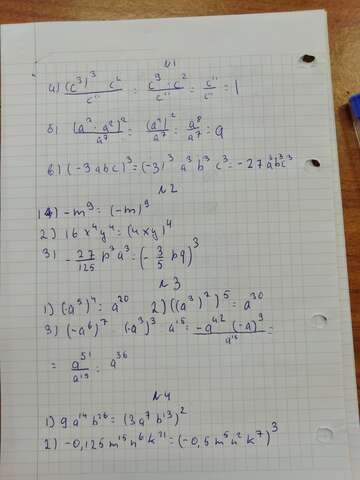 №1
а) (c³)³ c² / c¹¹ = c⁹ · c² / c¹¹ = c¹¹ / c¹¹ = 1
б) (a² · a²)² / a⁷ = (a⁴)² / a⁷ = a⁸ / a⁷ = a
в) (-3abc)³ = (-3)³ a³ b³ c³ = -27a³b³c³
№2
1) -m⁹ = (-m)⁹
2) 16x⁴y⁴ = (4xy)⁴
3) -27/125 p³q³ = (-3/5 pq)³
№3
1) (-a⁵)⁴ = a²⁰ 2) ((a³)²)⁵ = a³⁰
3) (-a⁶)⁷ · (-a³)³ : a¹⁵ = -a⁴² · (-a)⁹ / a¹⁵ =
= a⁵¹ / a¹⁵ = a³⁶
№4
1) 9a¹⁴b²⁶ = (3a⁷b¹³)²
2) -0,125m¹⁵n⁶k²¹ = (-0,5m⁵n²k⁷)³